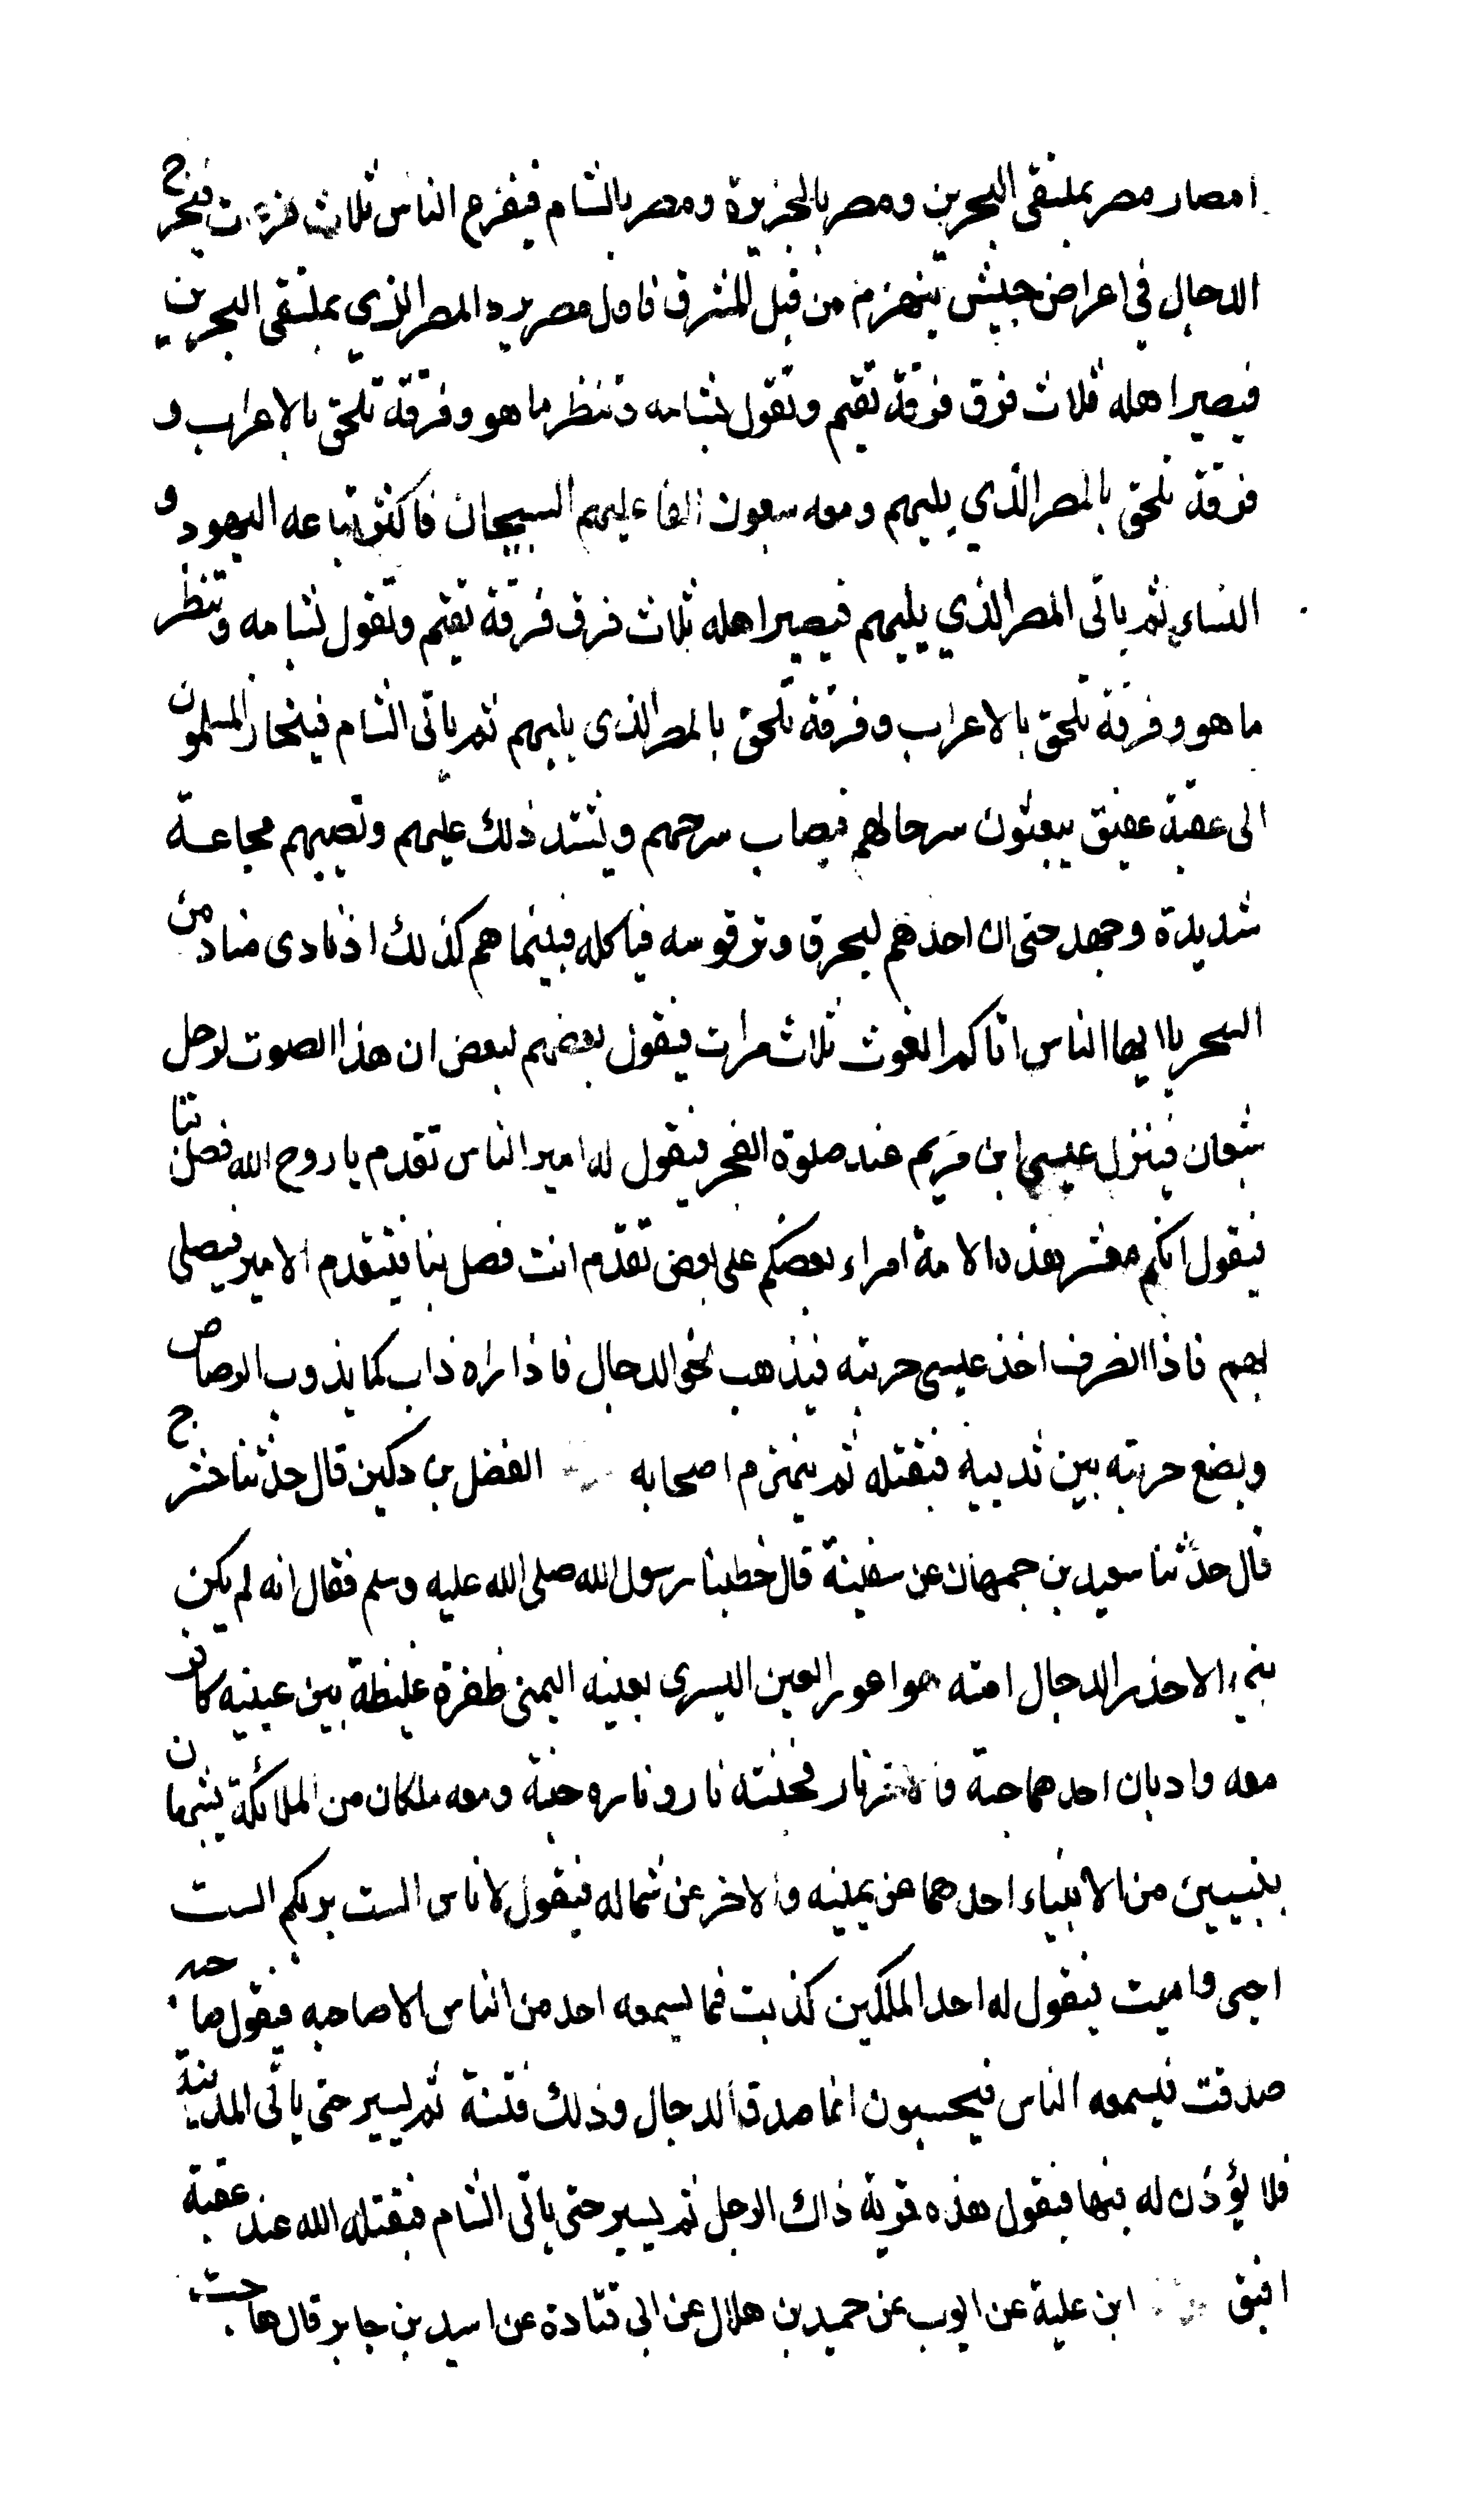 امصار مصر بملتقى البحرين ومصر بالجزيرة ومصر بالشام فيفزع الناس ثلاث فزعات فيخرج
الدجال في اعراض جيش ينهزم من قبل المشرق فاول مصر يرد المصر الذي بملتقى البحرين
فيصير اهله ثلاث فرق فرقة تقيم وتقول نشامه وتنظر ما هو وفرقة تلحق بالاعراب و
فرقة تلحق بالمصر الذي يليهم ومعه سبعون الفا عليهم السيجان فاكثر تباعه اليهود و
النساء ثم ياتى المصر الذي يليهم فيصير اهله ثلاث فرق فرقة تقيم وتقول نشامه وتنظر
ما هو وفرقة تلحق بالاعراب وفرقة تلحق بالمصر الذى يليهم ثم ياتى الشام فينحاز المسلمون
الى عقبة عفيق يبعثون سرحا لهم فيصاب سرحهم ويشتد ذلك عليهم وتصيبهم مجاعة
شديدة وجهد حتى ان احدهم ليحرق وتر قوسه فياكله فبينما هم كذلك اذ نادى مناد من
السحر يا ايها الناس اتاكم الغوث ثلاث مرات فيقول بعضهم لبعض ان هذا الصوت لرجل
شبعان فينزل عيسى ابن مريم عند صلوة الفجر فيقول له امير الناس تقدم يا روح الله فصل بنا
فيقول انكم معشر هذه الامة امراء بعضكم على بعض تقدم انت فصل بنا فيتقدم الامير فيصلي
بهم فاذا انصرف اخذ عيسى حربته فيذهب نحو الدجال فاذا راه ذاب كما يذوب الرصاص
ويضع حربته بين ثدييه فيقتله ثم ينهزم اصحابه الفضل بن دكين قال حدثنا حشرج
قال حدثنا سعيد بن جمهان عن سفينة قال خطبنا رسول الله صلى الله عليه وسلم فقال انه لم يكن
نبي الا حذر الدجال امته هو اعور العين اليسرى بعينه اليمنى ظفرة غليظة بين عينيه كافر
معه واديان احدهما جنة والاخر نار فجنته نار وناره جنة ومعه ملكان من الملائكة يشبهان
بنبيين من الانبياء احدهما عن يمينه والاخر عن شماله فيقول لاناس الست بربكم الست
احيى واميت فيقول له احد الملكين كذبت فما يسمعه احد من الناس الا صاحبه فيقول صاحبه
صدقت فيسمعه الناس فيحسبون انما صدق الدجال وذلك فتنة ثم يسير حتى ياتى المدينة
فلا يؤذن له فيها فيقول هذه قرية ذاك الرجل ثم يسير حتى ياتى الشام فيقتله الله عند عقبة
افيق ابن علية عن ايوب عن حميد بن هلال عن ابى قتادة عن اسيد بن جابر قال هاجت